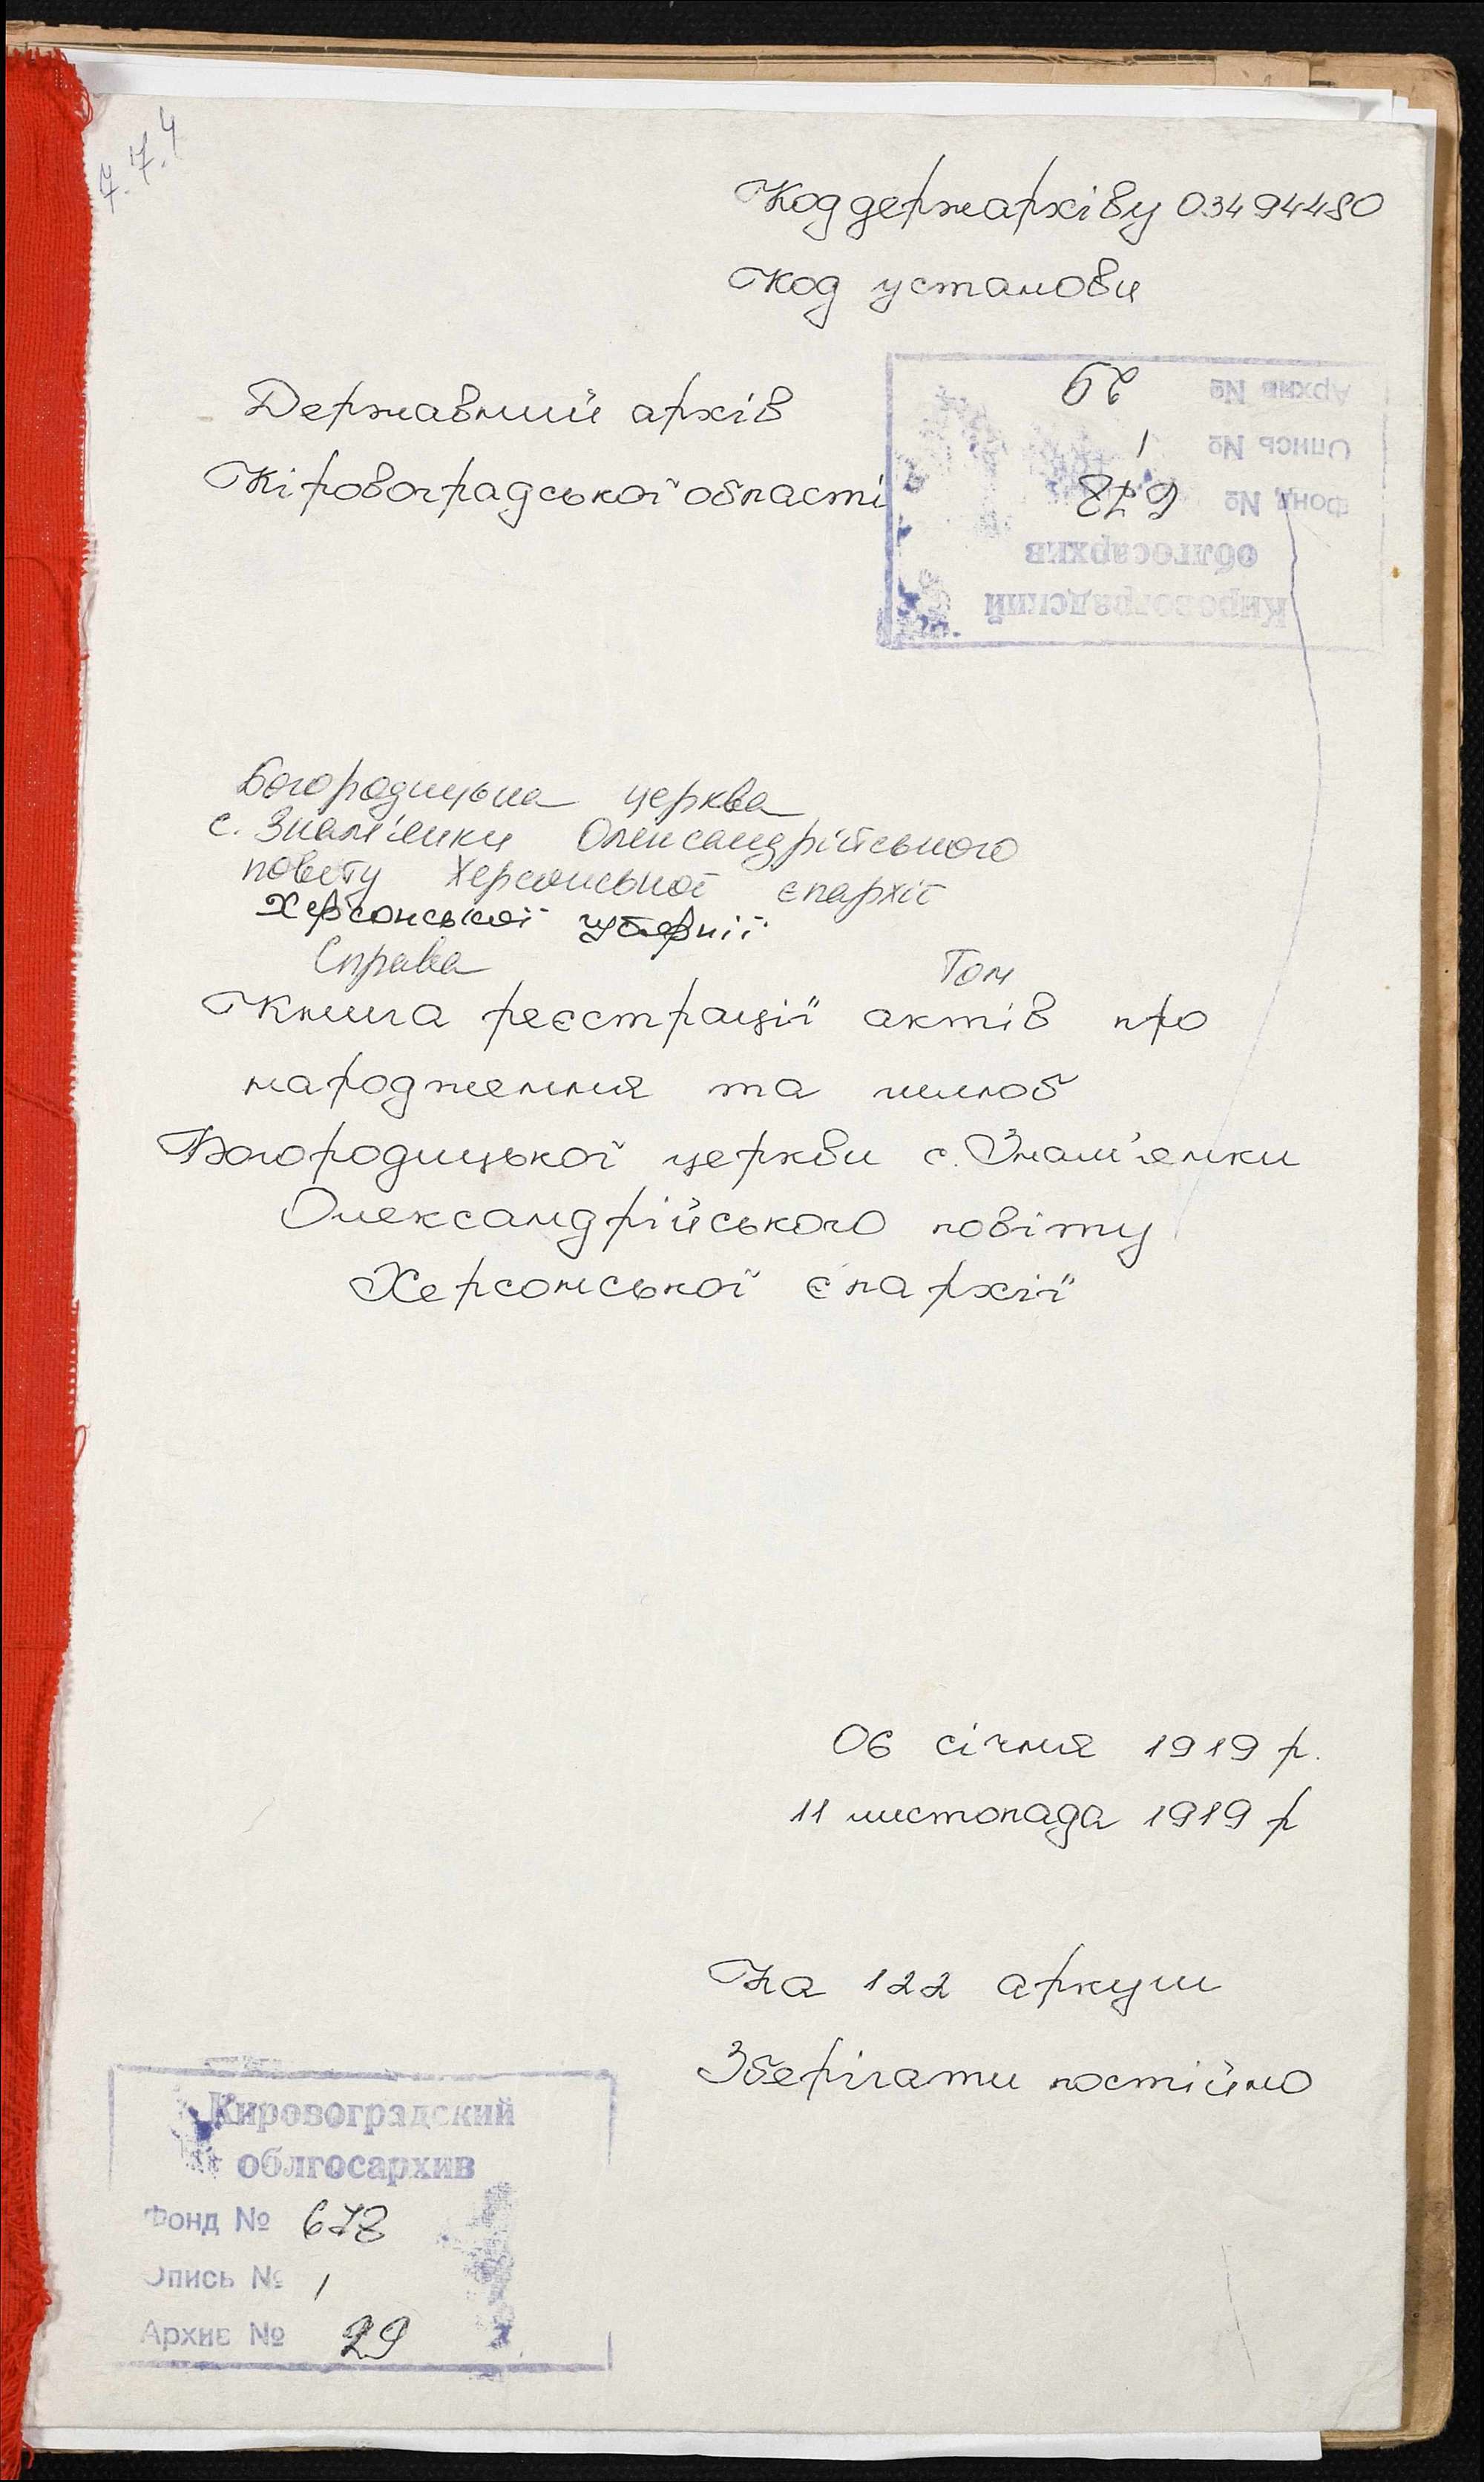 7.7.4
Код держархіву 03494480
Код установи
Державний архів
Кіровоградської області
Кировоградский
облгосархив
Фонд № 678
Опись № 1
Архив № 29
Богородицька церква
с. Знам'янки Олександрійського
повіту Херсонської єпархії
Херсонської губернії
Справа Том
Книга реєстрації актів про
народження та шлюб
Богородицької церкви с. Знам'янки
Олександрійського повіту
Херсонської єпархії
06 січня 1919 р.
11 листопада 1919 р
На 122 аркуш
Зберігати постійно
Кировоградский
облгосархив
Фонд № 678
Опись № 1
Архив № 29